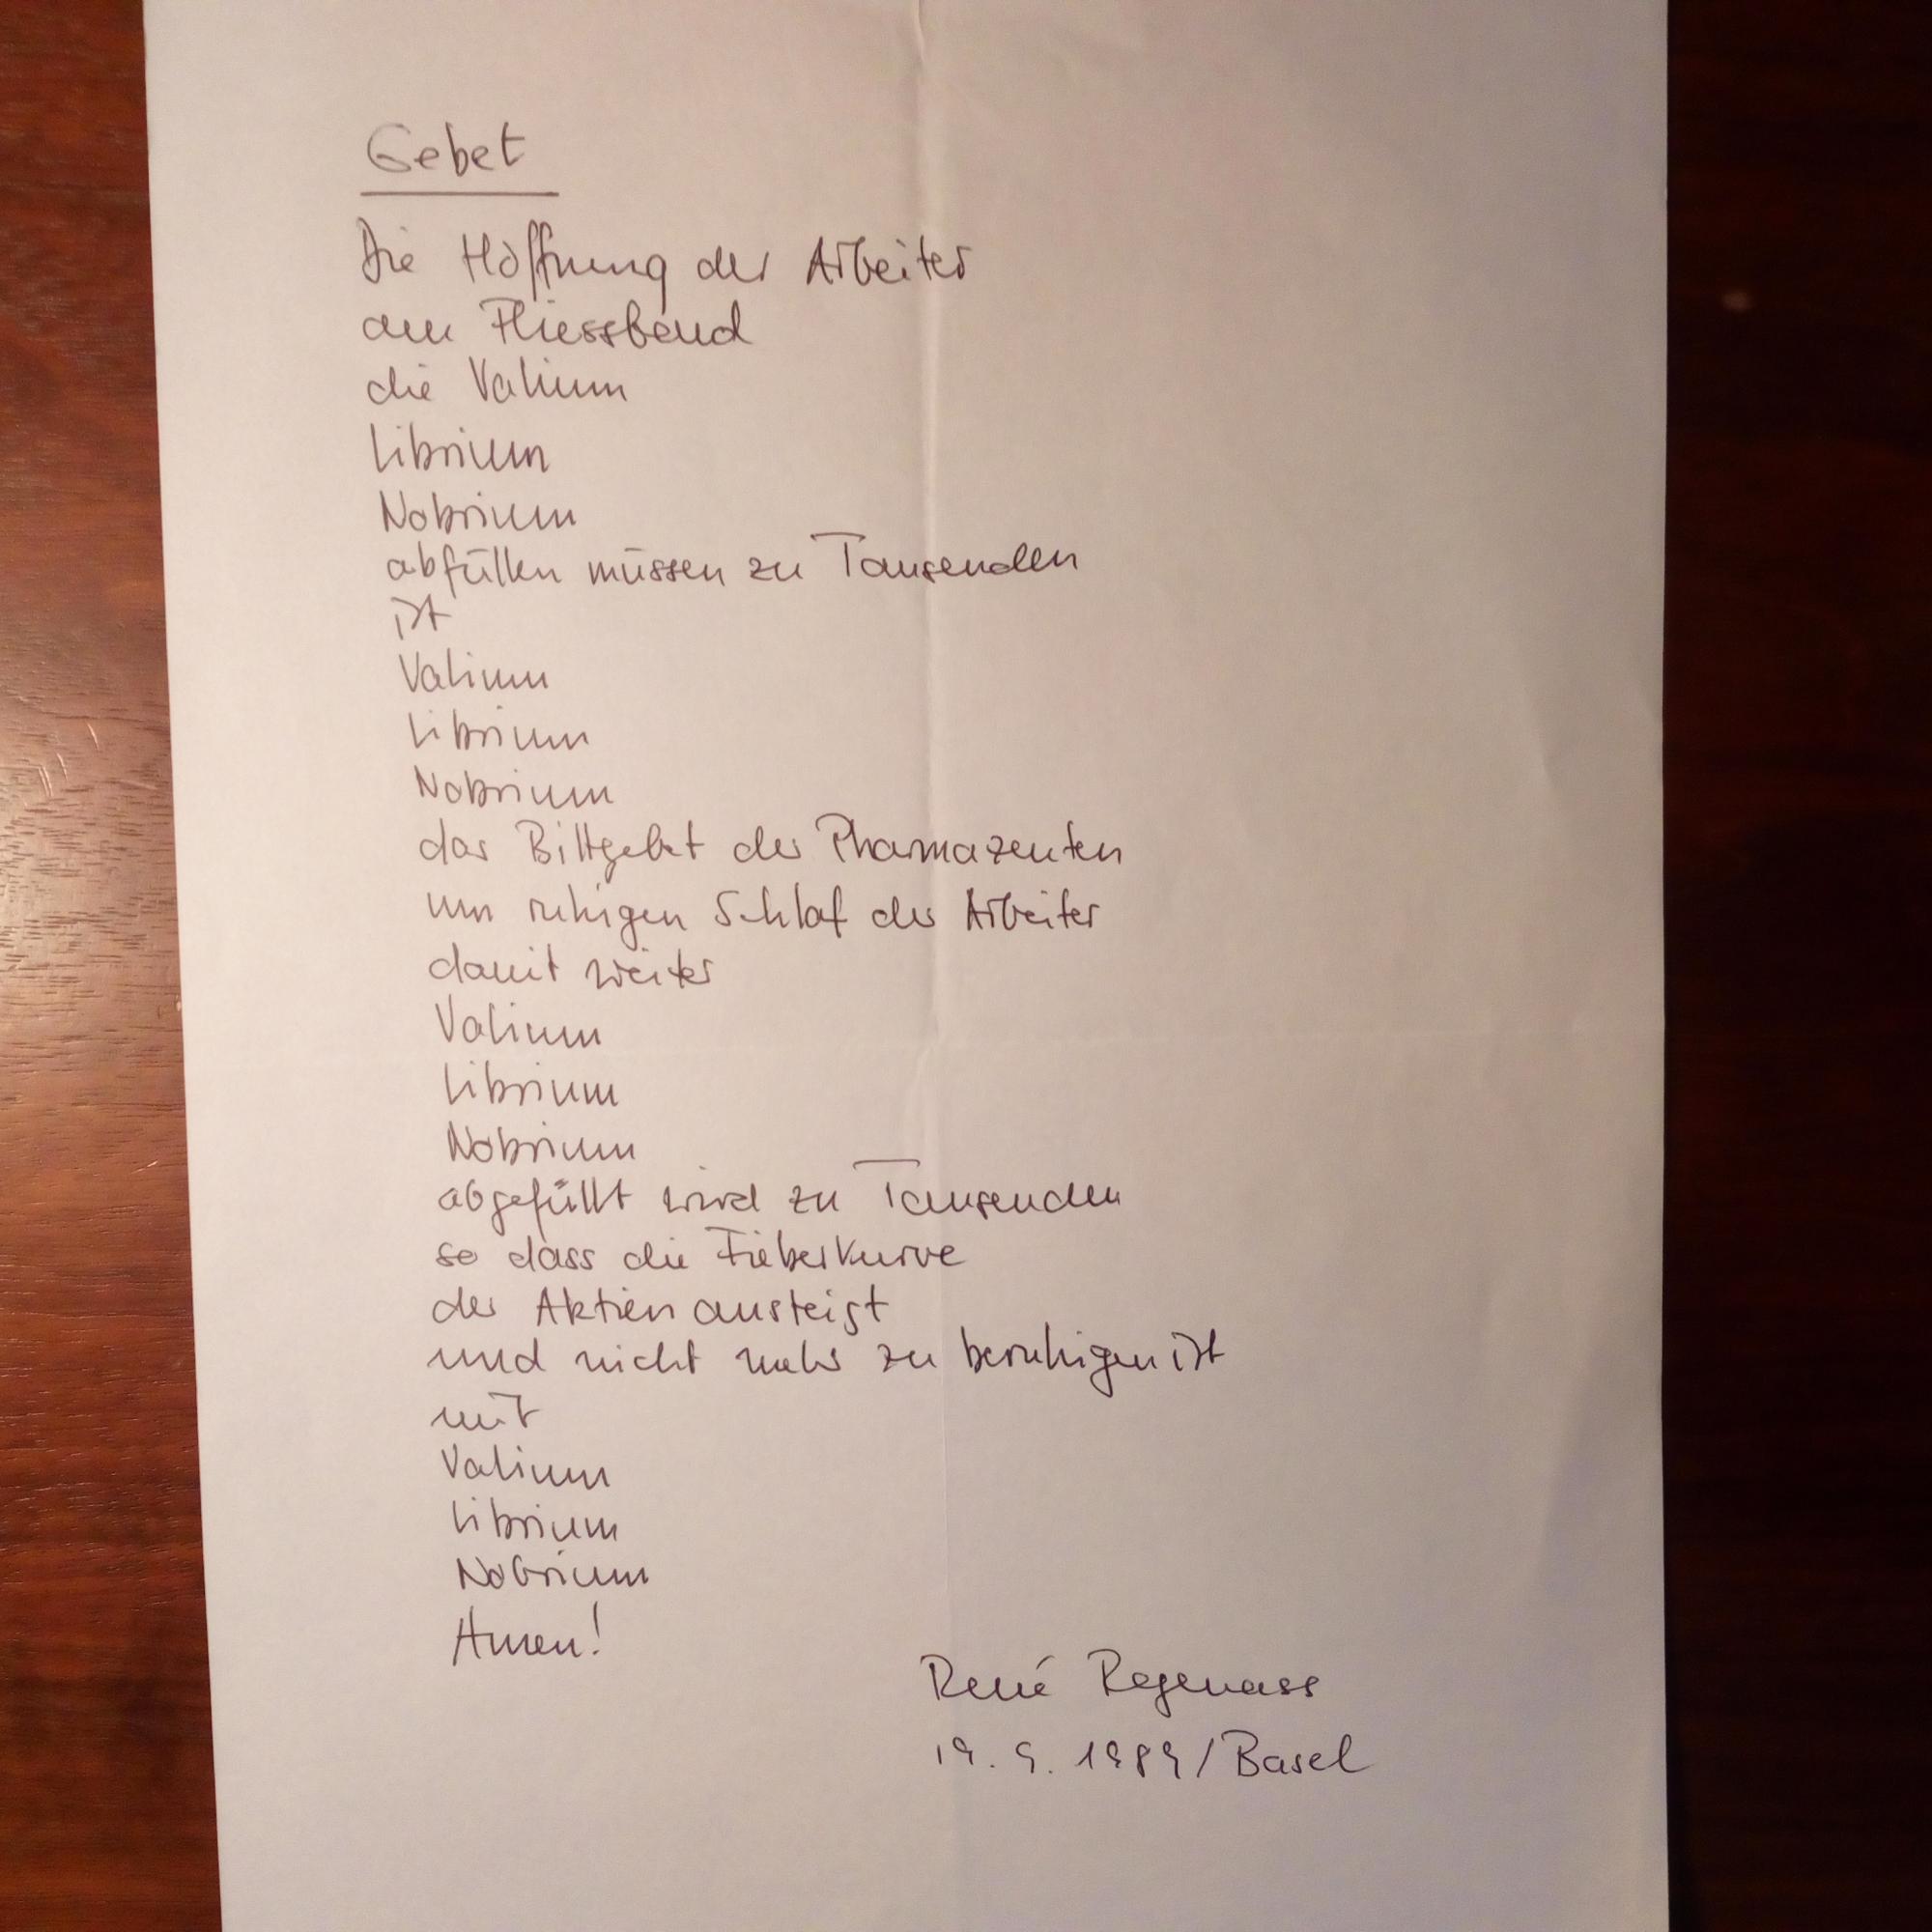 Gebet
Die Hoffnung der Arbeiter
am Fliessband
die Valium
Librium
Nobrium
abfüllen müssen zu Tausenden
ist
Valium
Librium
Nobrium
das Bittgebet der Pharmazeuten
um ruhigen Schlaf der Arbeiter
damit weiter
Valium
Librium
Nobrium
abgefüllt wird zu Tausenden
so dass die Fieberkurve
der Aktien ansteigt
und nicht mehr zu beruhigen ist
mit
Valium
Librium
Nobrium
Amen!
René Regenass
19. 9. 1989/Basel